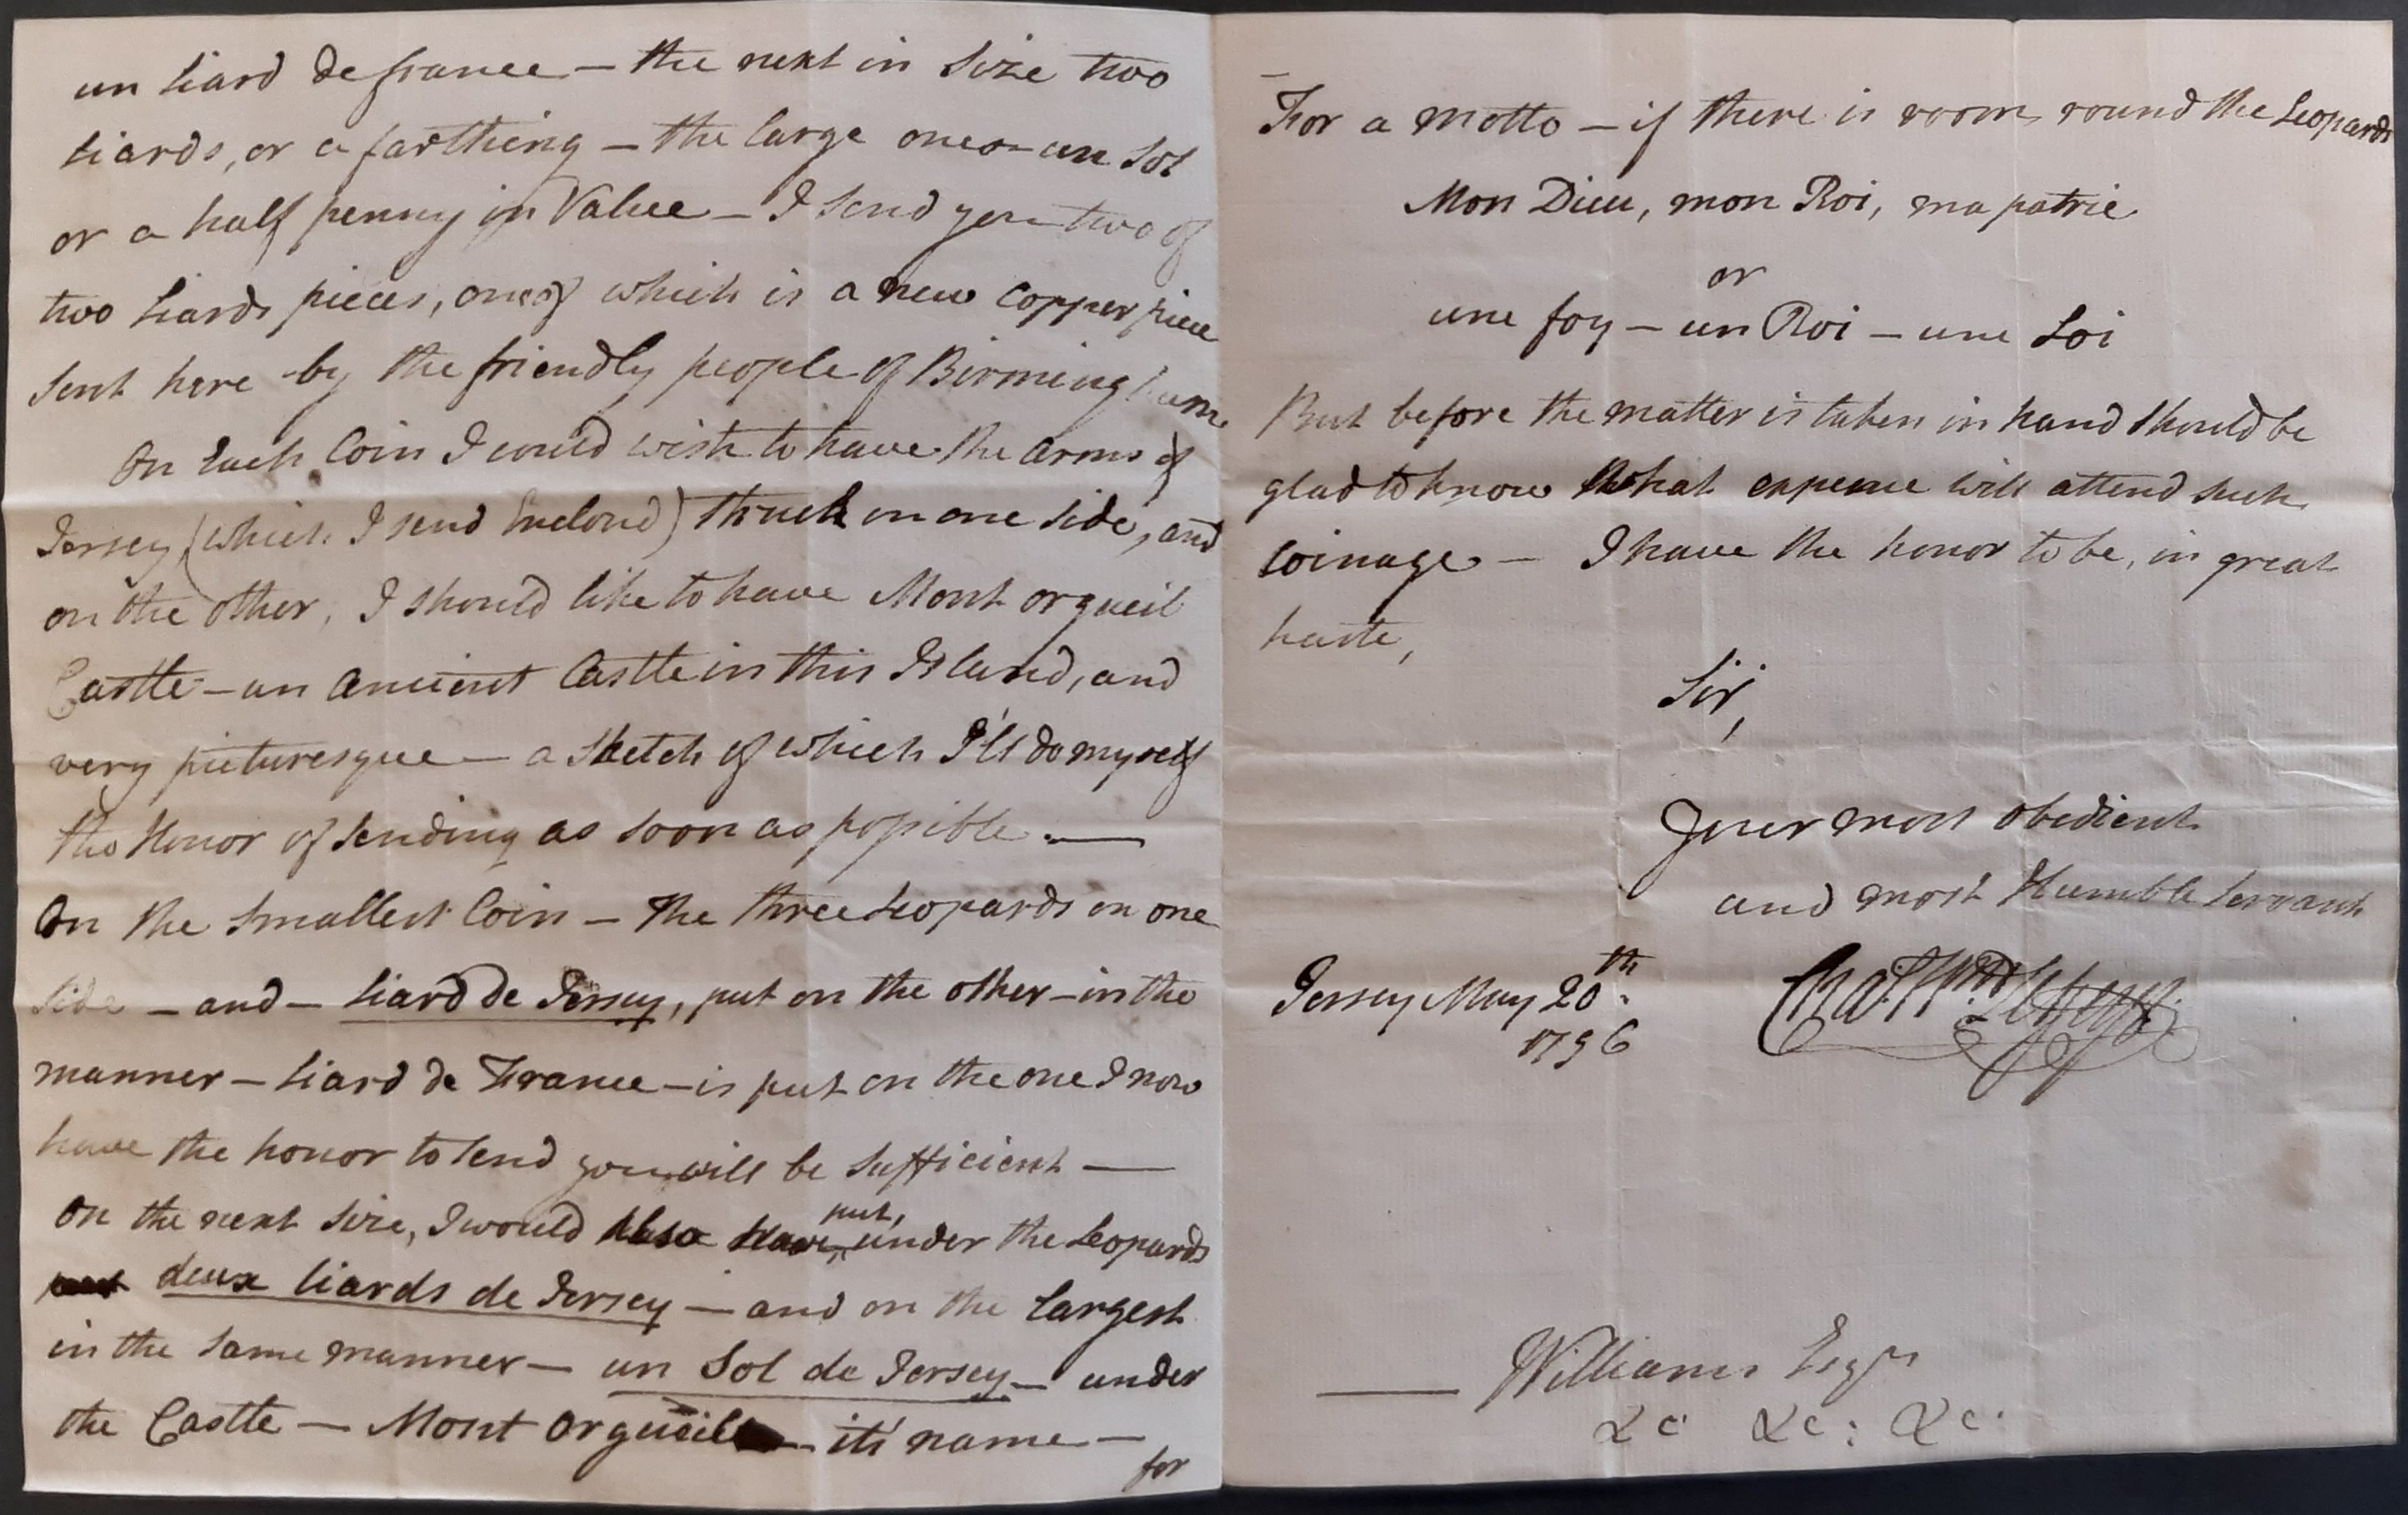 un liard de france – the next in size two
liards, or a farthing – the large ones un Sol
or a half penny in Value – I send you two of
two liards pieces, one of which is a new copper piece
sent here by the friendly people of Birmingham
On Each Coin I could wish to have the arms of
Jersey (which I send Enclosed) struck on one side, and
on the other, I should like to have Mont orgueil
Castle – an Ancient Castle in this Island, and
very picturesque – a sketch of which I'll do myself
the Honor of sending as soon as possible. —
On the smallest Coin – The three Leopards on one
side – and – liard de Jersey, put on the other – in the
manner – liard de France – is put on the one I now
have the honor to send you will be sufficient —
On the next size, I would also have, put, under the Leopards
deux liards de Jersey – and on the largest
in the same manner – un Sol de Jersey – under
the Castle – Mont Orgueil – it's name –
for
For a motto – if there is room round the Leopards
Mon Dieu, mon Roi, ma patrie
or
une foy – un Roi – une Loi
But before the matter is taken in hand should be
glad to know What expence will attend such
coinage – I have the honor to be, in great
haste,
Sir,
Your most obedient
and most Humble Servant
Jersey May 20th.
1796
— Williams Esqr
&c &c: &c: